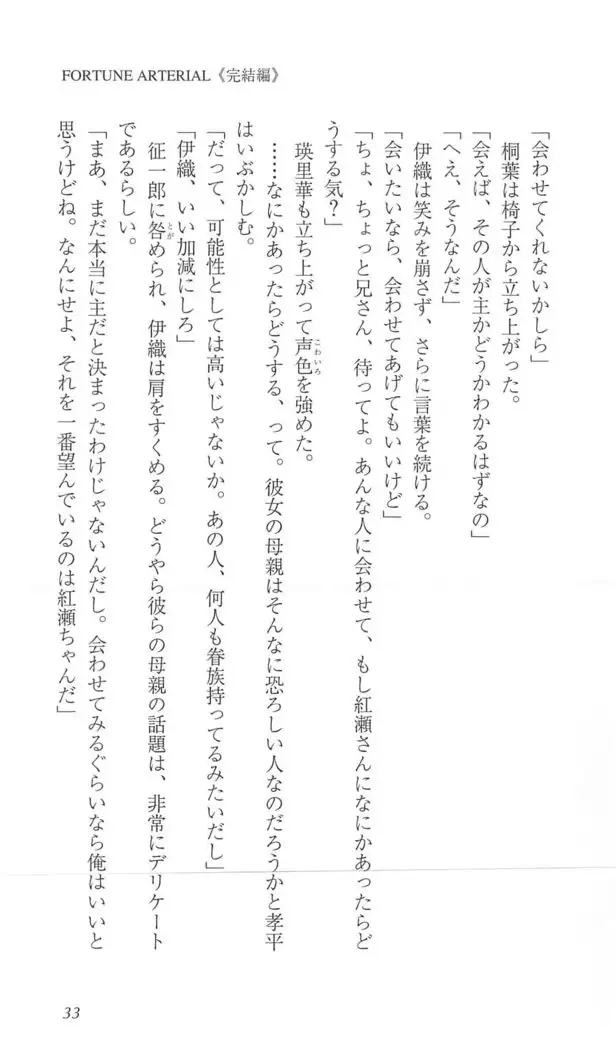 FORTUNE ARTERIAL《完結編》
「会わせてくれないかしら」
桐葉は椅子から立ち上がった。
「会えば、その人が主かどうかわかるはずなの」
「へえ、そうなんだ」
伊織は笑みを崩さず、さらに言葉を続ける。
「会いたいなら、会わせてあげてもいいけど」
「ちょ、ちょっと兄さん、待ってよ。あんな人に会わせて、もし紅瀬さんになにかあったらど
うする気?」
瑛里華も立ち上がって声色を強めた。
……なにかあったらどうする、って。彼女の母親はそんなに恐ろしい人なのだろうかと孝平
はいぶかしむ。
「だって、可能性としては高いじゃないか。あの人、何人も眷族持ってるみたいだし」
「伊織、いい加減にしろ」
征一郎に咎められ、伊織は肩をすくめる。どうやら彼らの母親の話題は、非常にデリケート
であるらしい。
「まあ、まだ本当に主だと決まったわけじゃないんだし。会わせてみるぐらいなら俺はいいと
思うけどね。なんにせよ、それを一番望んでいるのは紅瀬ちゃんだ」
33